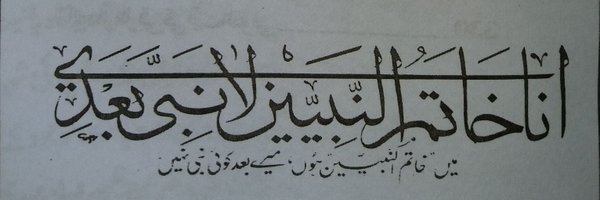 انا خاتم النبیین لا نبی بعدی
میں "خاتم النبیین" ہوں، میرے بعد کوئی نبی نہیں